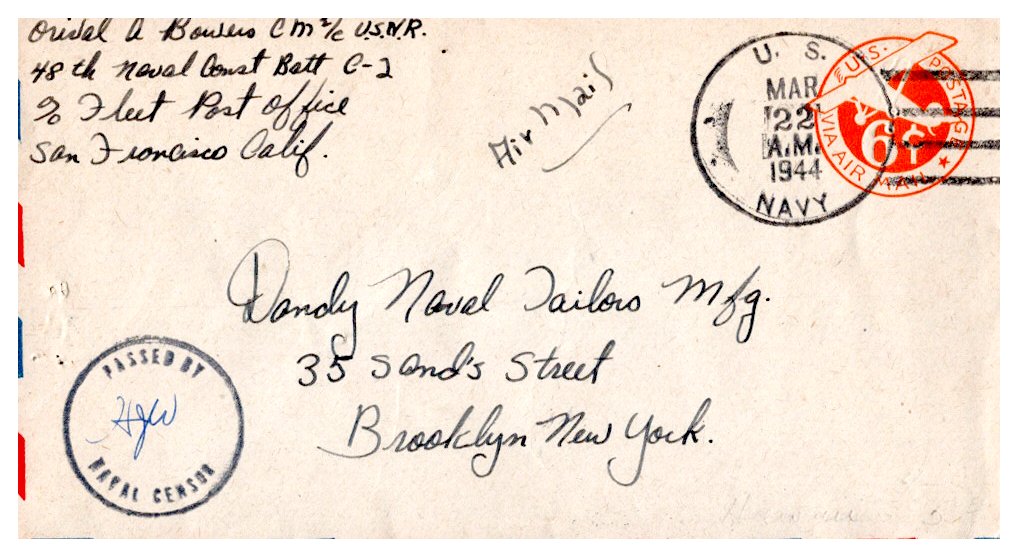 Orival A Bowers CM 2/c U.S.N.R.
48 th Naval Const Batt C-2
c/o Fleet Post Office
San Francisco Calif.
Air Mail
U. S.
MAR
22
A.M.
1944
NAVY
U.S. POSTAGE
6¢
VIA AIR MAIL
Dandy Naval Tailors Mfg.
35 Sand's Street
Brooklyn New York.
PASSED BY
HJW
NAVAL CENSOR